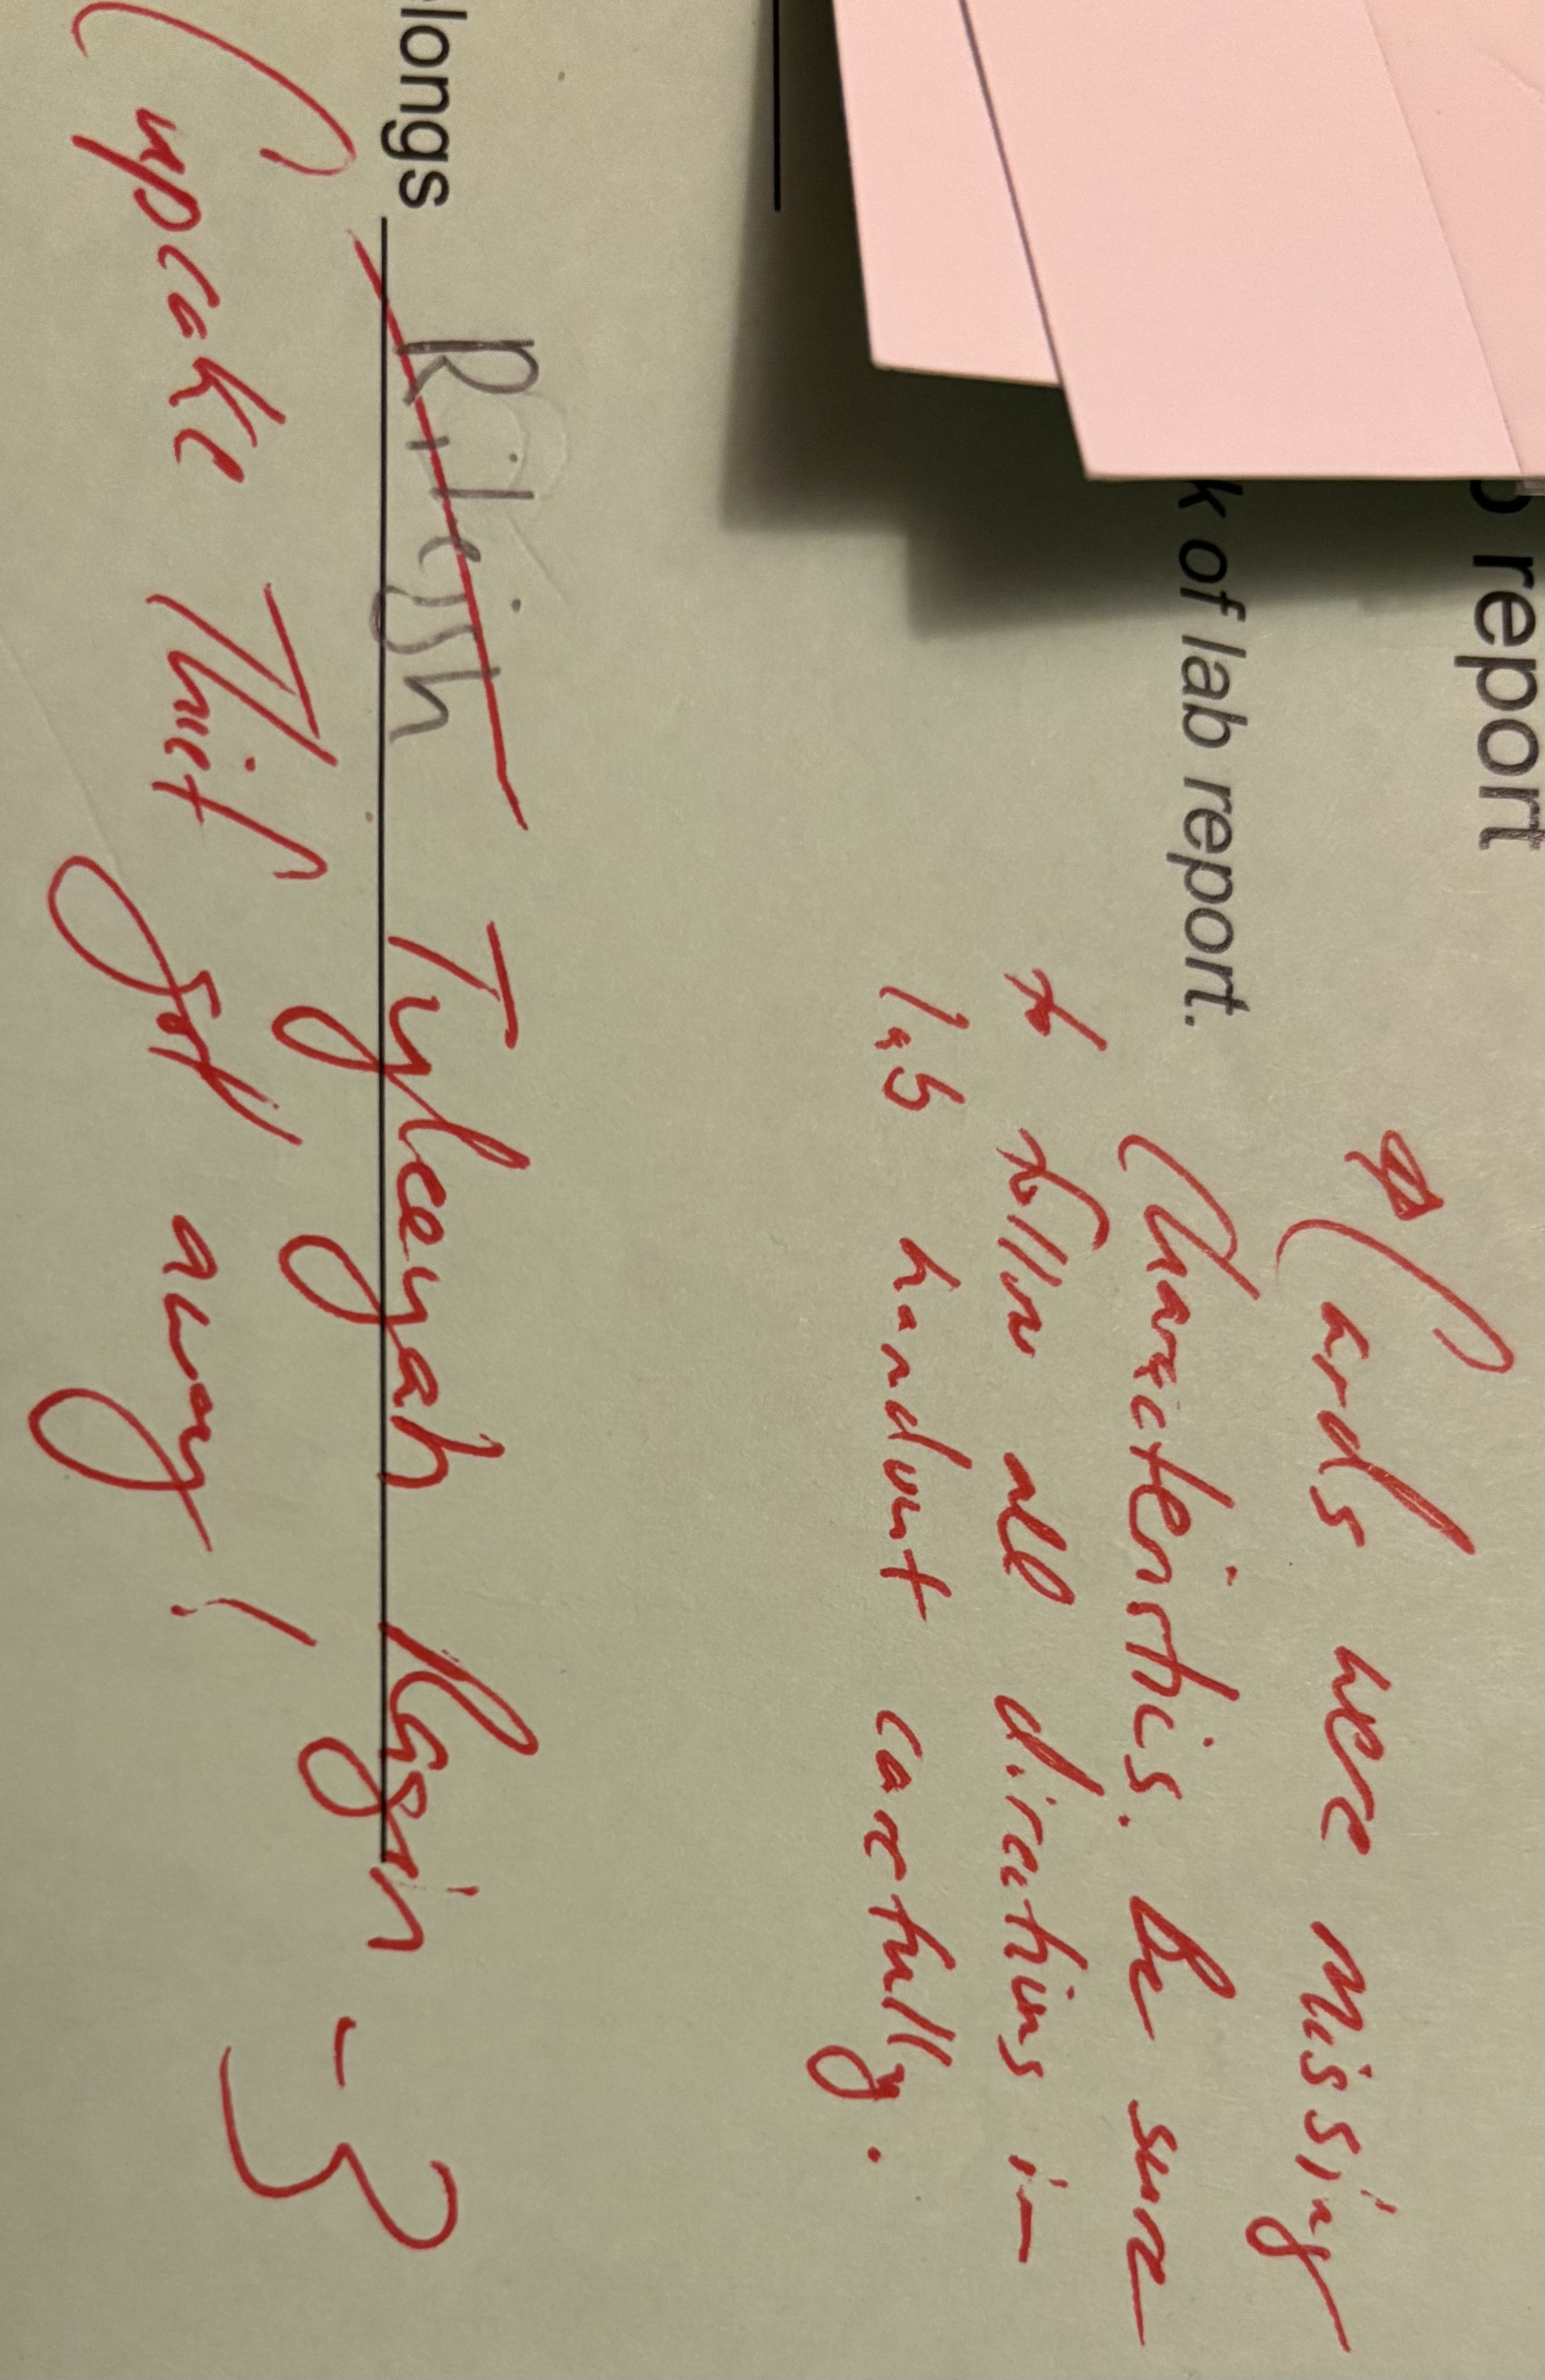 report
k of lab report.
* Cards were missing
Characteristics. Be sure
to follow all directions in
lab handout carefully.
longs Ritejsh Tyleeyah -3
Cupcake Thief got away!